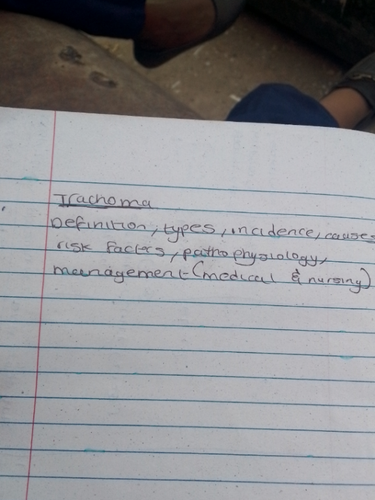 Trachoma
Definition, types, incidence, causes
risk factors, pathophysiology,
management (medical & nursing)